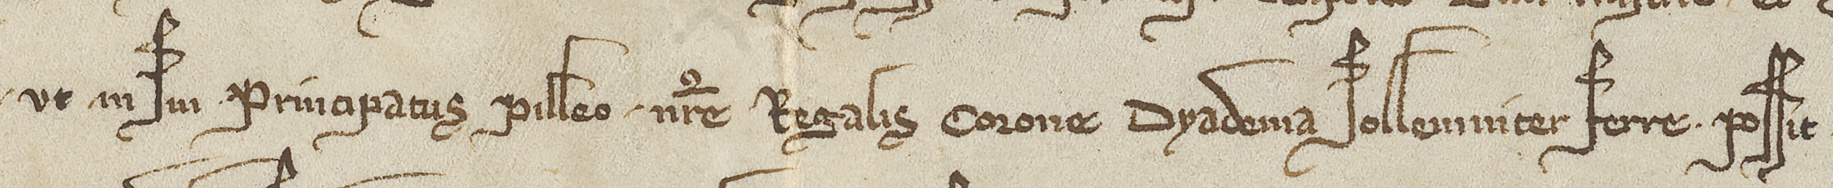 ut in sui Principatus pilleo nr̄e Regalis Corone Dyadema sollemniter ferre possit